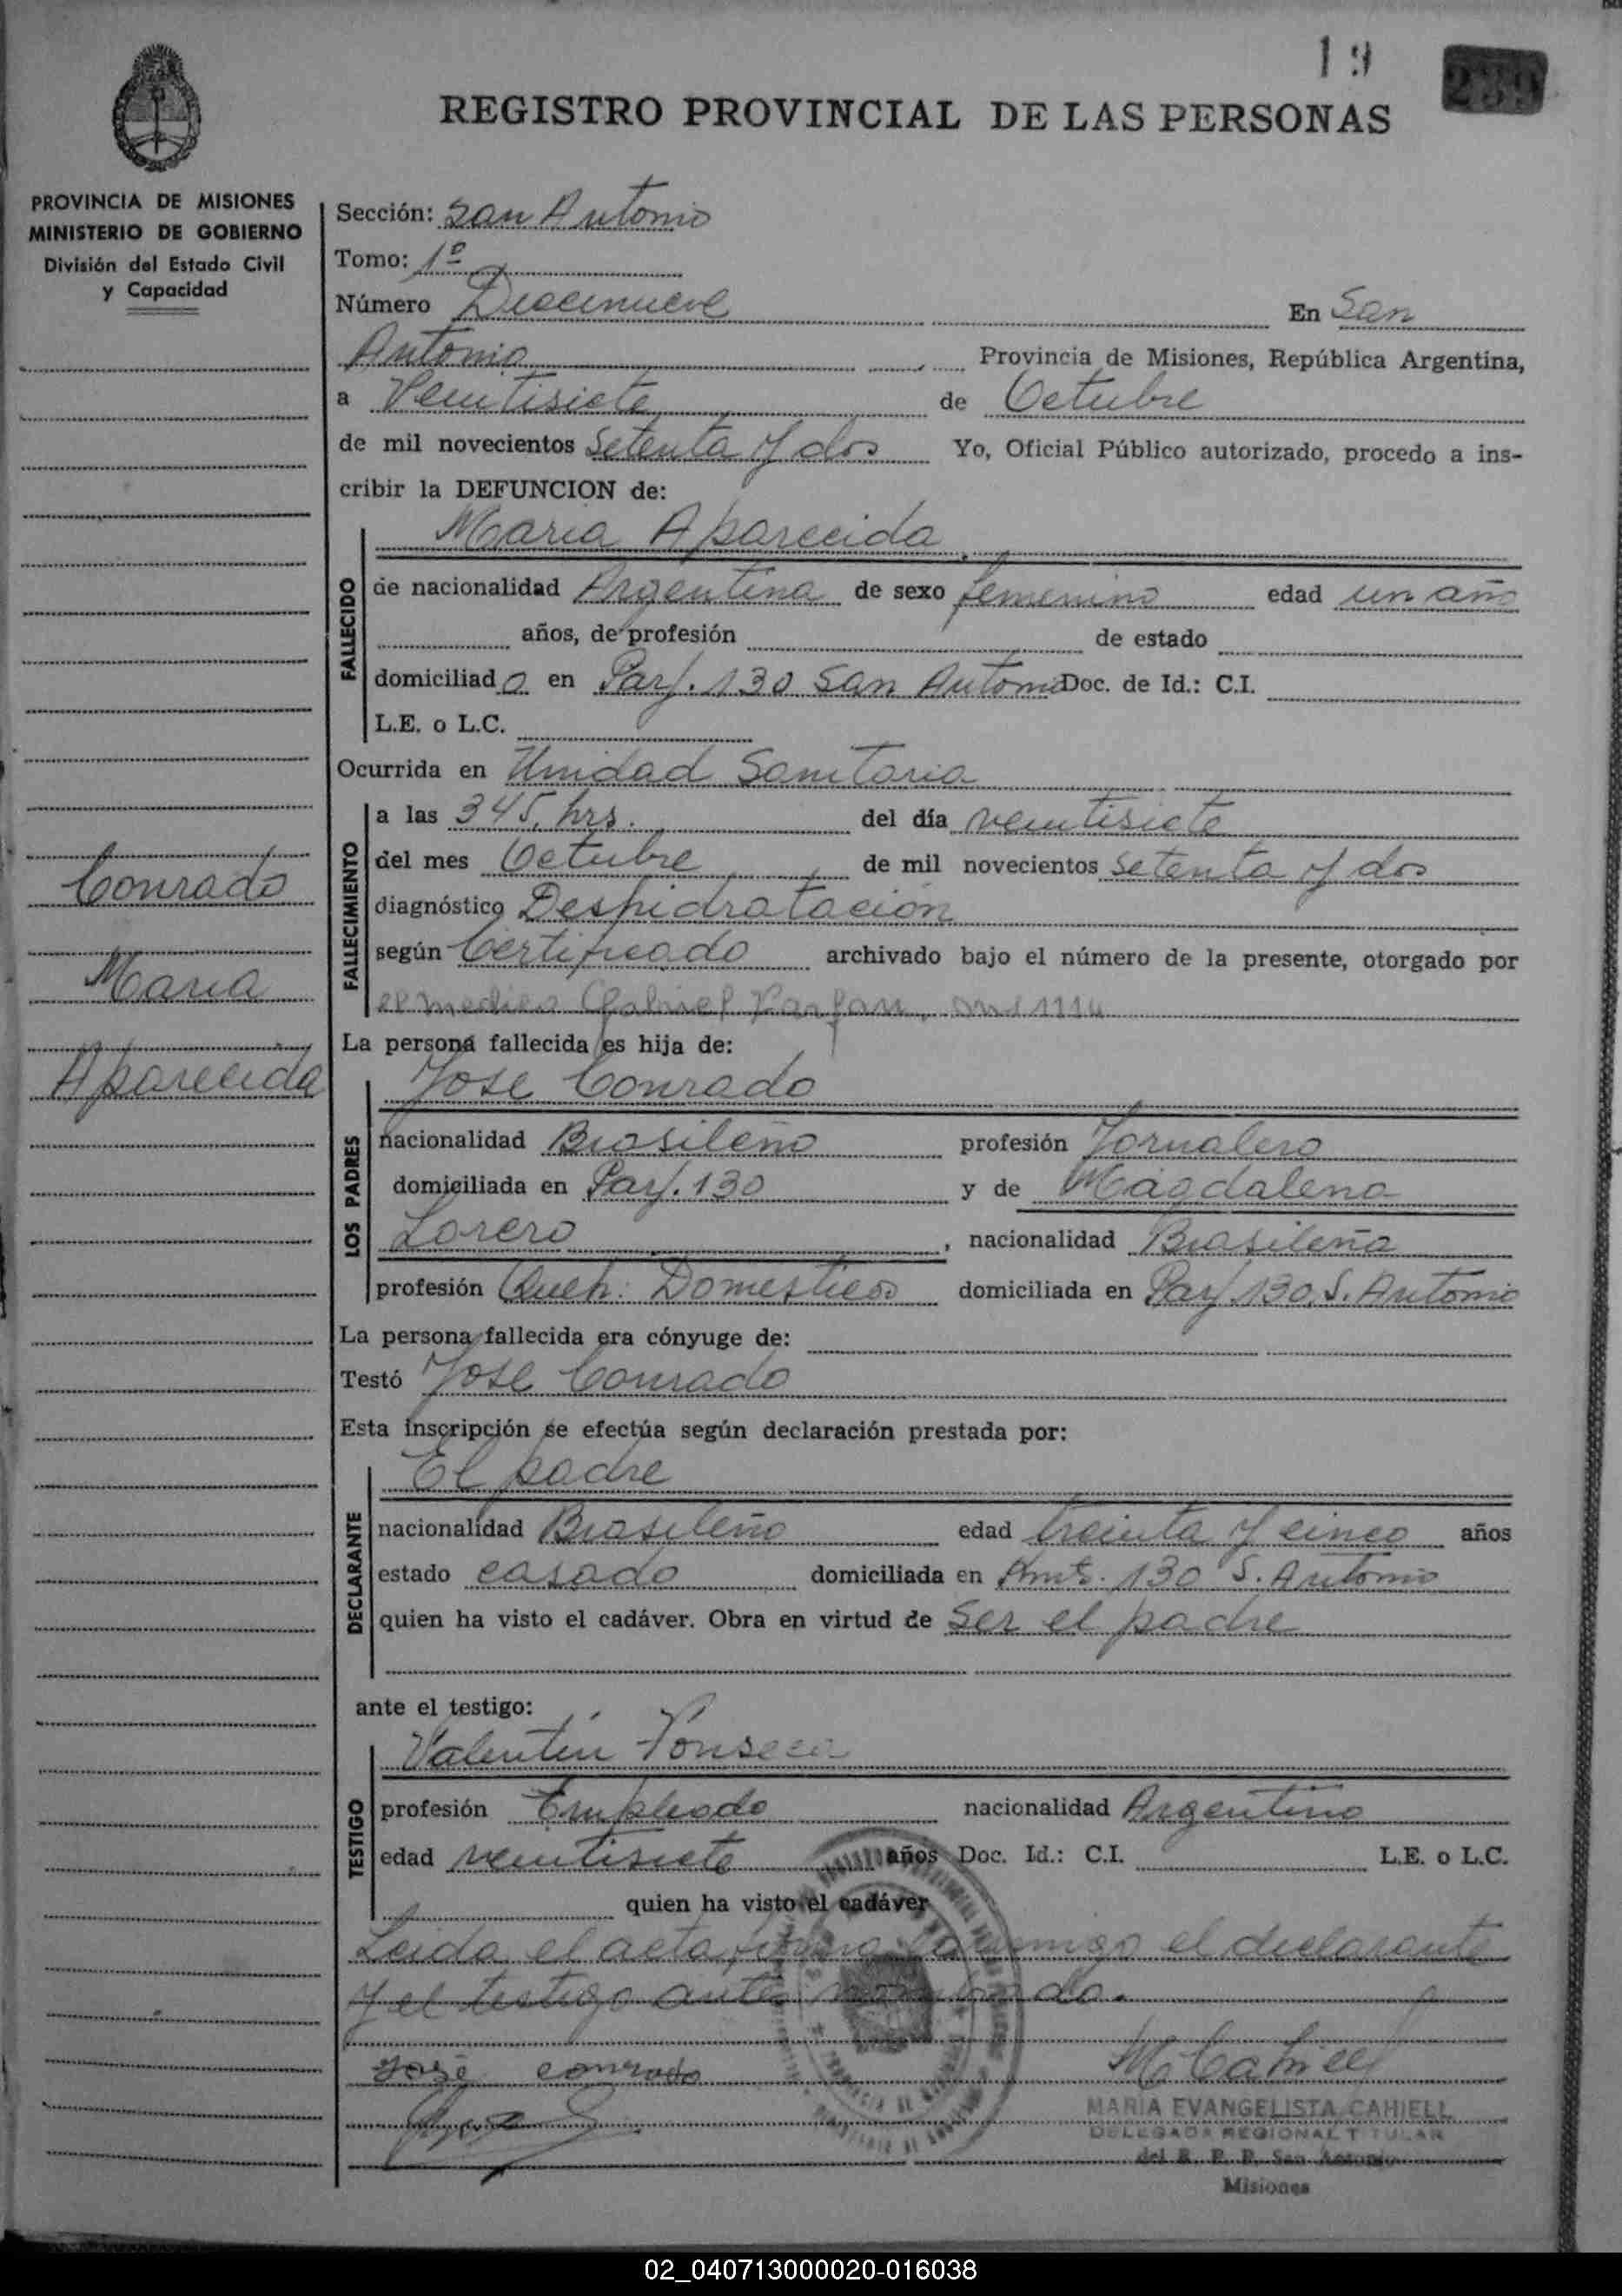 19
239
REGISTRO PROVINCIAL DE LAS PERSONAS
PROVINCIA DE MISIONES
MINISTERIO DE GOBIERNO
División del Estado Civil
y Capacidad
Conrado
Maria
Aparecida
Sección: San Antonio
Tomo: 1º
Número Diecinueve En San
Antonio Provincia de Misiones, República Argentina,
a Veintisiete de Octubre
de mil novecientos Setenta y dos Yo, Oficial Público autorizado, procedo a ins-
cribir la DEFUNCION de:
Maria Aparecida
FALLECIDO
de nacionalidad Argentina de sexo femenino edad un año
años, de profesión de estado
domiciliado en Parj. 130 San Antonio Doc. de Id.: C.I.
L.E. o L.C.
Ocurrida en Unidad Sanitaria
FALLECIMIENTO
a las 345, hrs. del día veintisiete
del mes Octubre de mil novecientos Setenta y dos
diagnóstico Deshidratación
según Certificado archivado bajo el número de la presente, otorgado por
el medico Gabriel Farfan, 1114
La persona fallecida es hija de:
LOS PADRES
Jose Conrado
nacionalidad Brasileño profesión Jornalero
domiciliada en Parj. 130 y de Magdalena
Lorero, nacionalidad Brasileña
profesión Queh. Domesticos domiciliada en Parj 130, S. Antonio
La persona fallecida era cónyuge de:
Testó Jose Conrado
Esta inscripción se efectúa según declaración prestada por:
DECLARANTE
El padre
nacionalidad Brasileño edad treinta y cinco años
estado casado domiciliada en 130 S. Antonio
quien ha visto el cadáver. Obra en virtud de Ser el padre
ante el testigo:
TESTIGO
Valentín Fonseca
profesión Empleado nacionalidad Argentino
edad veintisiete años Doc. Id.: C.I. L.E. o L.C.
quien ha visto el cadáver
Leida el acta, conmigo el declarante
y el testigo antes nombrado.
José conrado
M Cahiell
MARIA EVANGELISTA CAHIELL
DELEGADA REGIONAL TITULAR
del R. P. P. San Antonio
Misiones
02_040713000020-016038